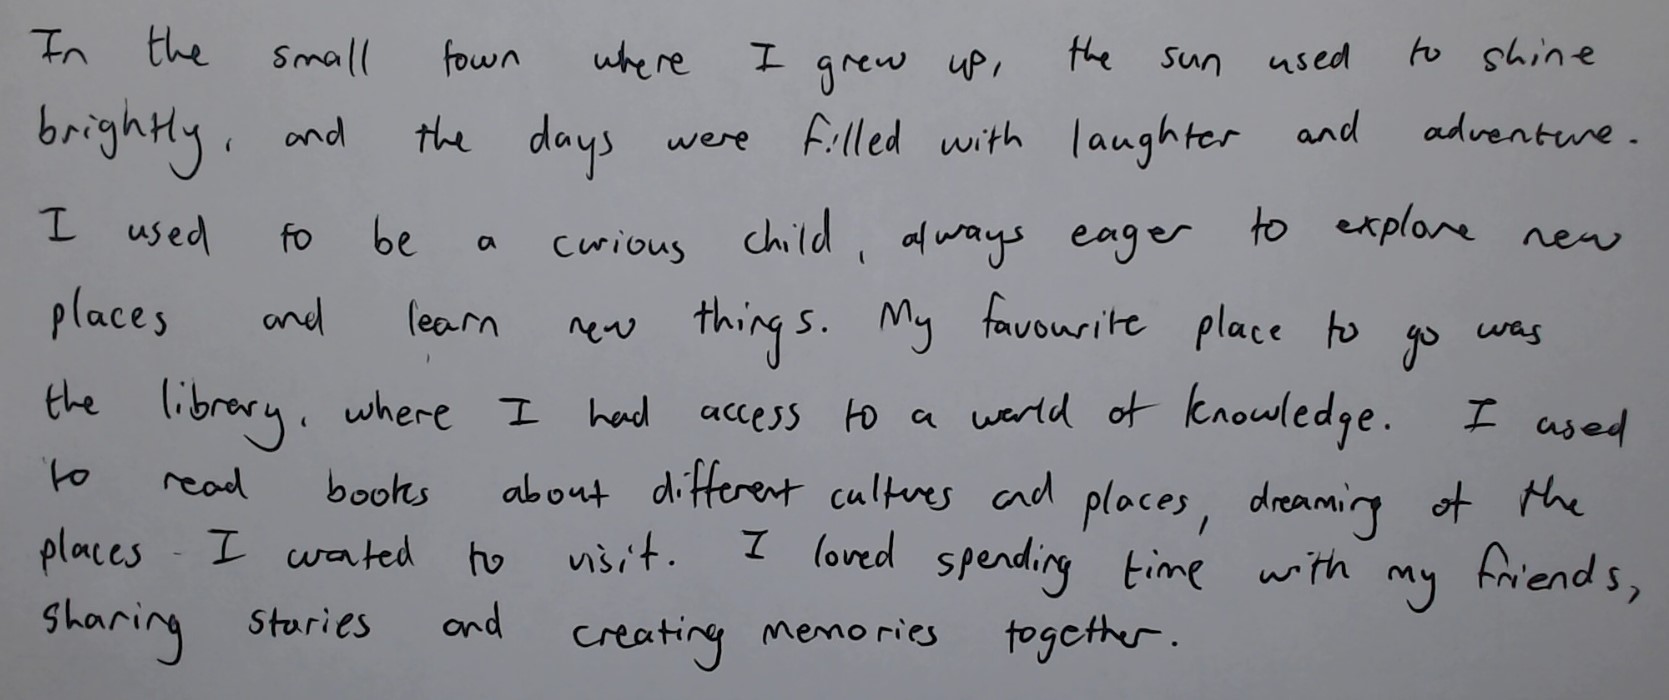 In the small town where I grew up, the sun used to shine
brightly, and the days were filled with laughter and adventure.
I used to be a curious child, always eager to explore new
places and learn new things. My favourite place to go was
the library, where I had access to a world of knowledge. I used
to read books about different cultures and places, dreaming of the
places I wanted to visit. I loved spending time with my friends,
sharing stories and creating memories together.